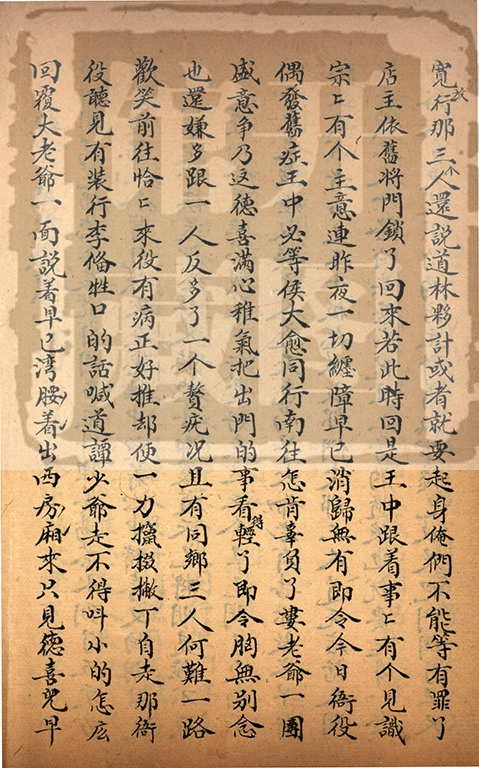 寬放行那三个人還說道林夥計或者就要起身俺們不能等有罪了
店主依舊將門鎖了回來若此時回是王中跟着事〻有个見識
宗〻有个主意連昨夜一切纏障早已消歸無有即令今日衙役
偶發舊症王中必等侯大愈同行南往怎肯辜負了婁老爺一團
盛意争乃這德喜滿心稚氣把出門的事看得輕了即令胸無别念
也還嫌多跟一人反多了一个贅疣况且有同鄉三人何難一路
歡笑前往恰〻來役有病正好推却便一力攛掇撇丁自走那衙
役聽見有装行李俻牲口的話喊道譚少爺走不得呌小的怎広
回覆大老爺一面説着早已湾腰着出西房廂來只見德喜児早